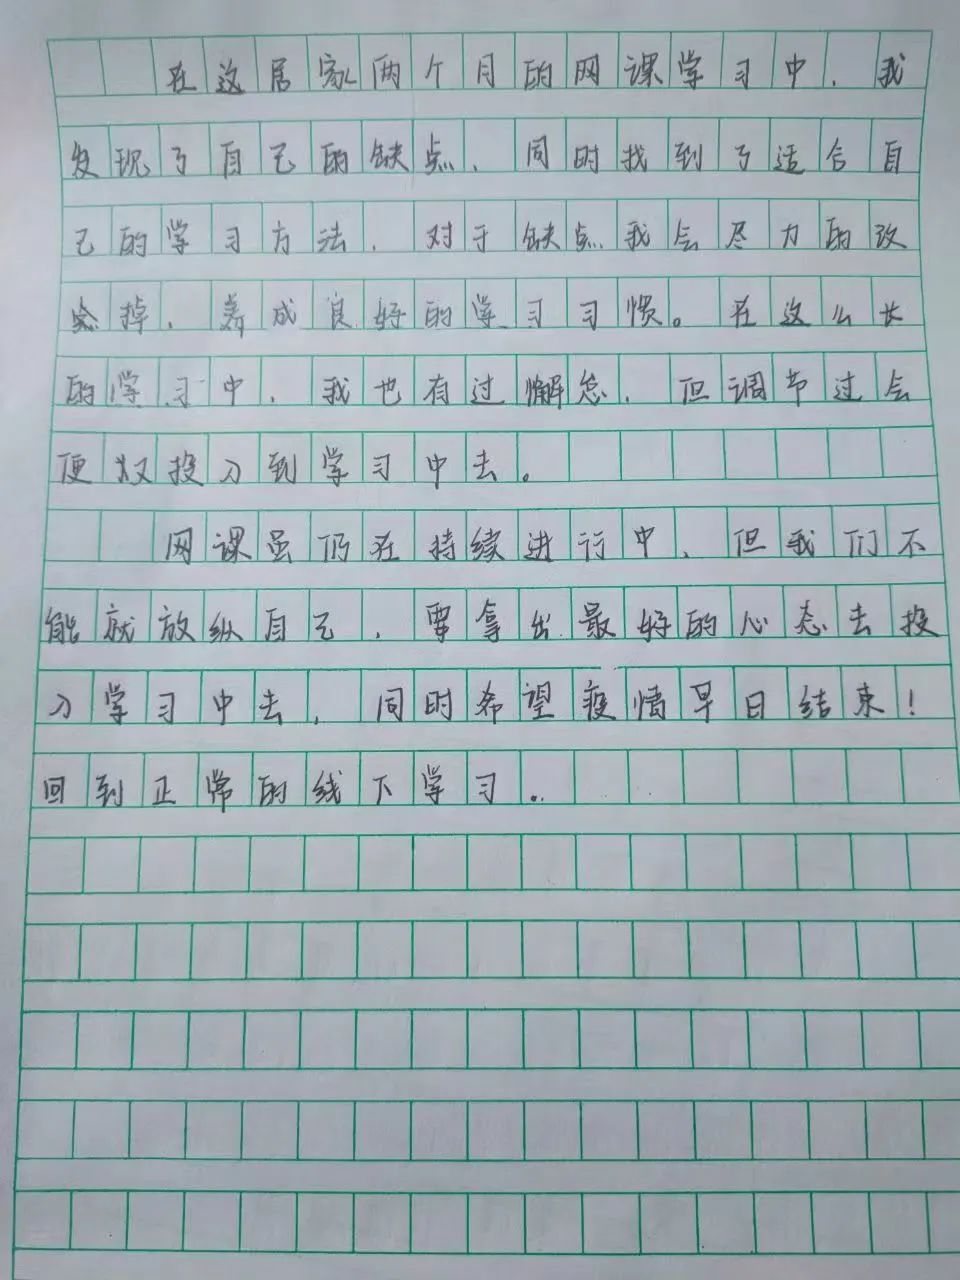 在这居家两个月的网课学习中，我
发现了自己的缺点，同时找到了适合自
己的学习方法，对于缺点我会尽力的改
掉，养成良好的学习习惯。在这么长
的学习中，我也有过懈怠，但调节过会
便又投入到学习中去。
网课虽仍在持续进行中，但我们不
能就放纵自己，要拿出最好的心态去投
入学习中去，同时希望疫情早日结束！
回到正常的线下学习。